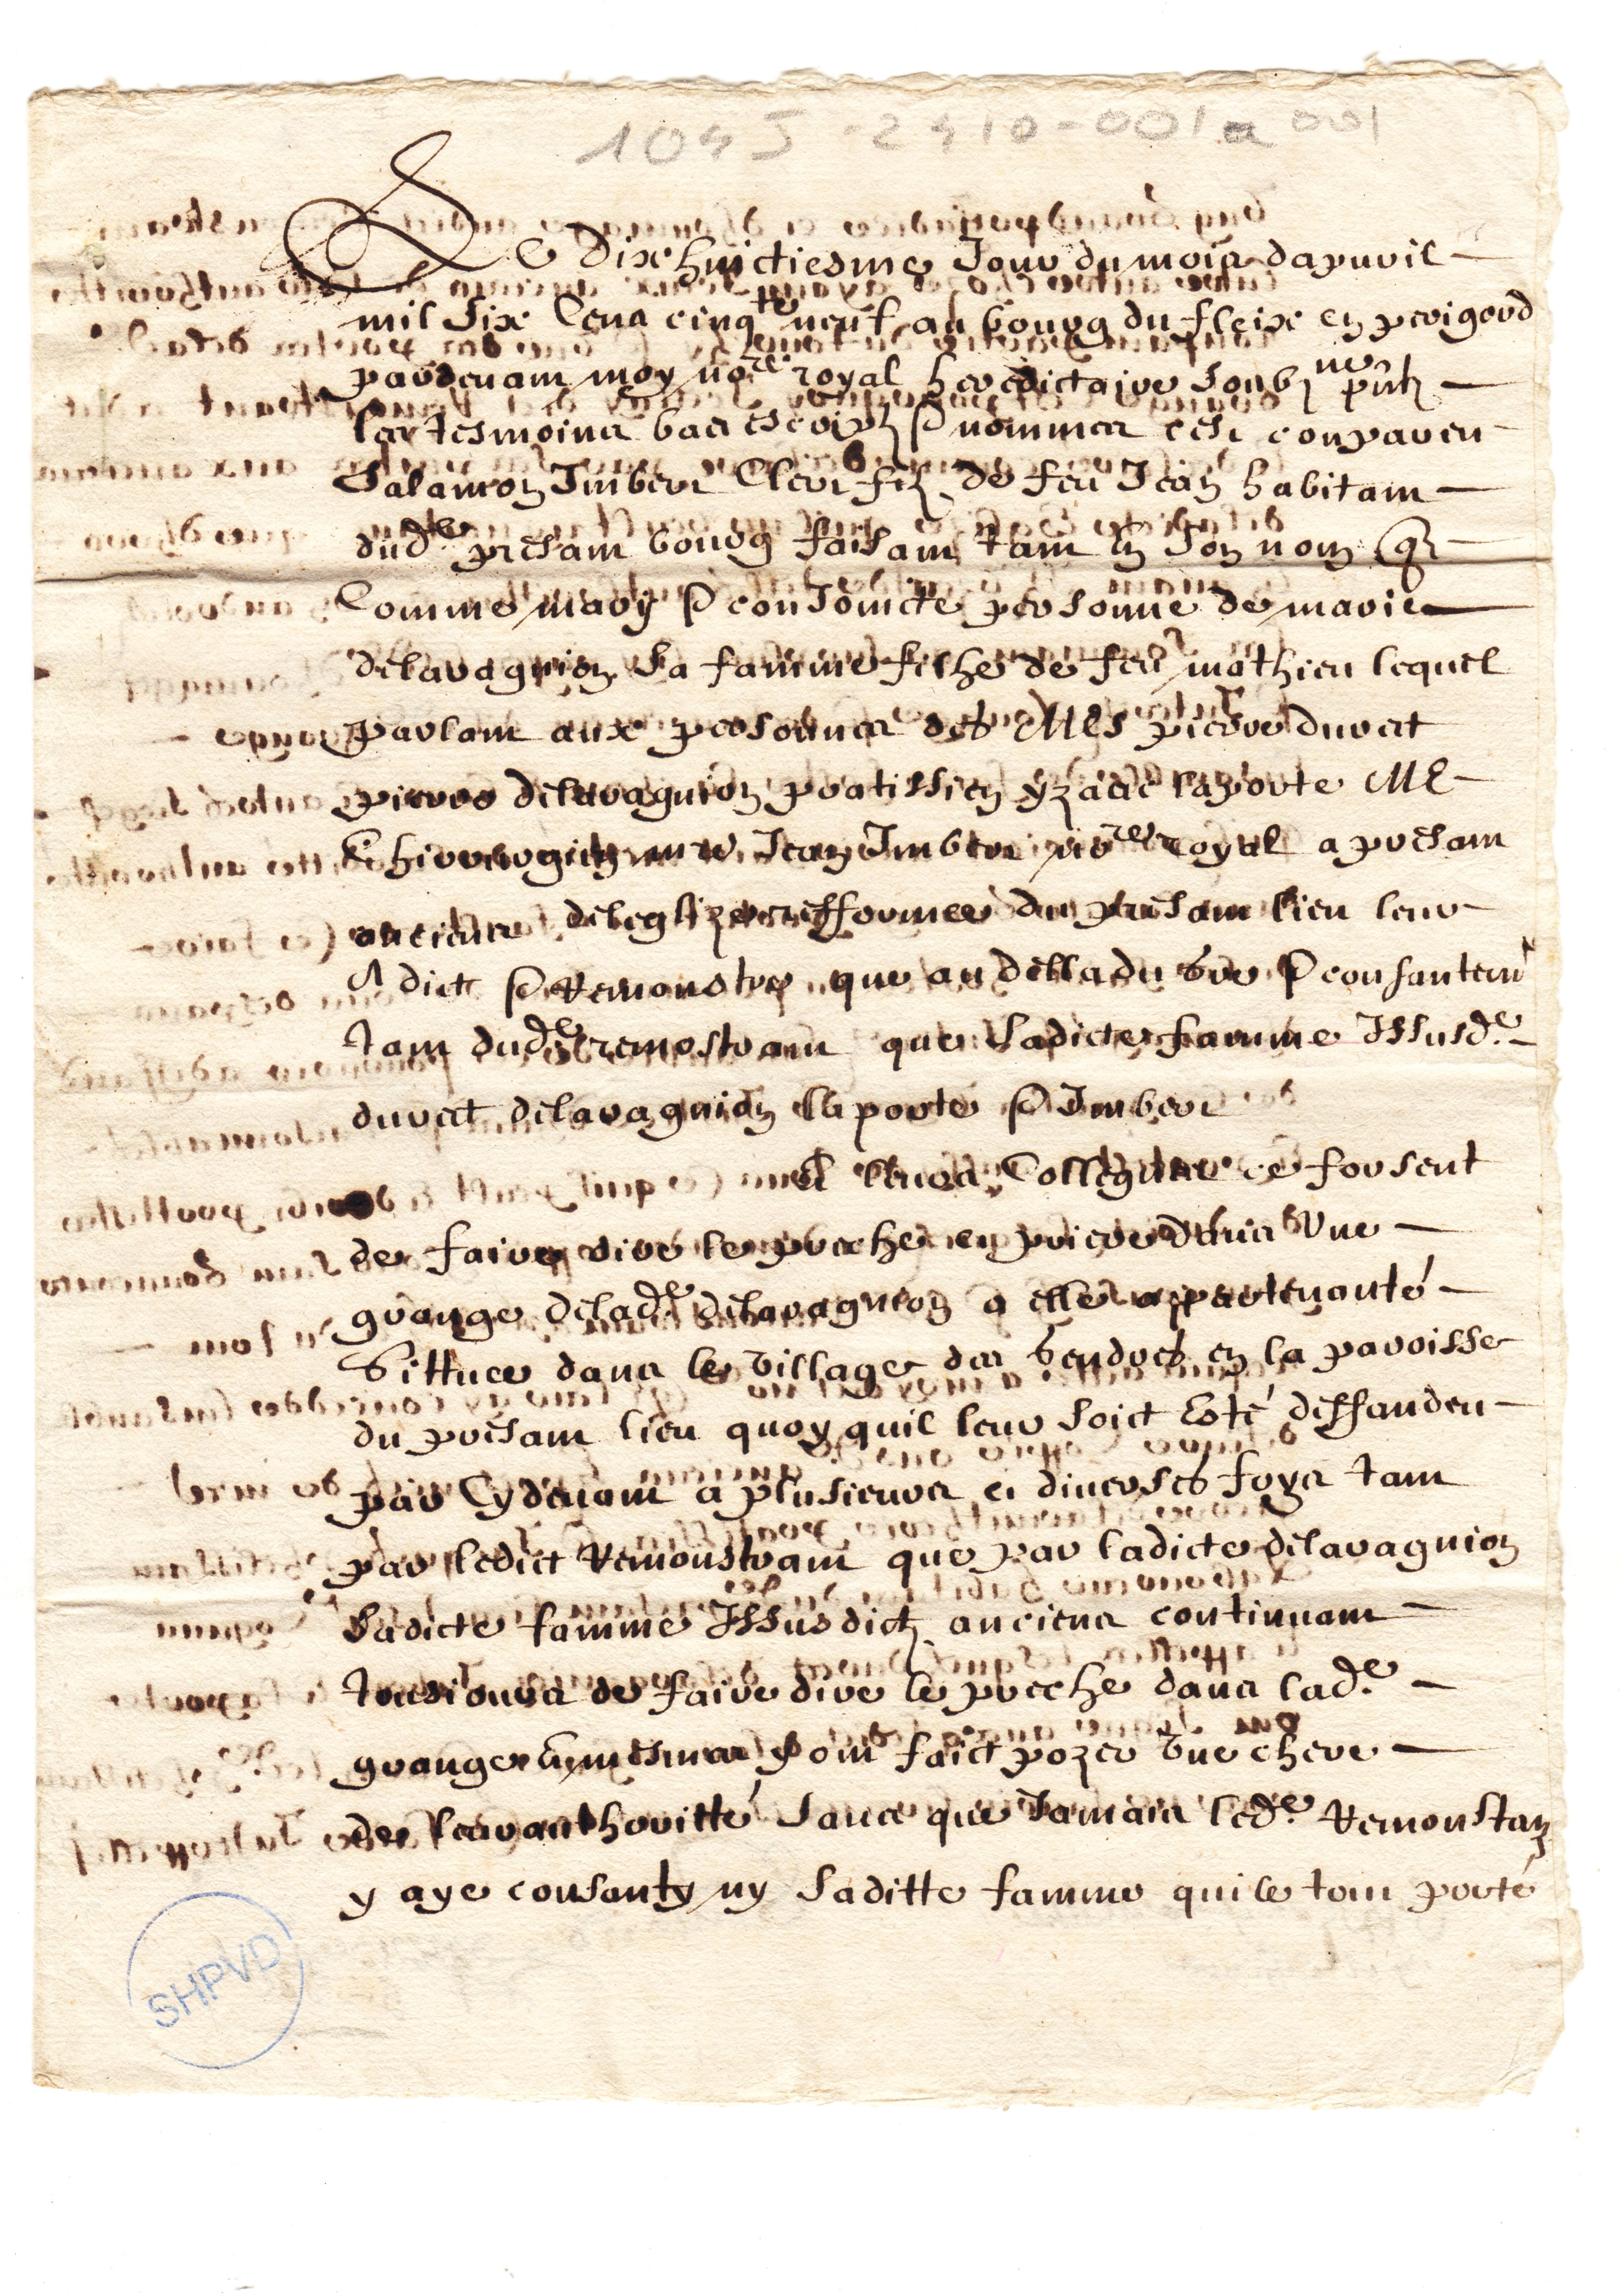 104J-2410-001a 001
Le dixhuictiesme Jour du mois dapuvril
mil Six Cens cinqte neuf au bourg du fleix en perigord
pardevant moy nore royal heredictaire soubzne pntz
les tesmoins bas escriptz & nommes cest conpareu
Salamon Imbert Clerc filz de feu Jean habitant
dude presant bourg faisant tant en son nom q
Comme mary & conjoincte personne de marie
delavagnion sa famme filhe de feu mathieu lequel
parlant aux personnes des Mes pierre duvat
pierre delavagnion pratissien yzaac laporte Me
Jean Imbert nore royal a presant
anciens de leglize refformee du presant lieu leur
A dict & Remonstre que au della du gre & consantemt
tant dude remostrant que sadicte famme Issusde
duvat delavagnion laporte & Imbert
leurs Collegues ce forsent
de faire dire le preche en priere dans Une
grange delade delavagnion a elle appartenanté
Sittuee dans le village des bendres en la paroisse
du presant lieu quoy quil leur soict Esté deffandeu
par Cydevant a plusieurs et diverses foys tant
par ledict Remonstrant que par ladicte delavagnion
Sadicte famme Issusdictz anciens continuant
tousiours de faire dire le preche dans lade
grange & mesmes y ont faict pozer Une chere
de leur authoritté sance que Jamais lede Remonstan
y aye consanty ny Saditte famme qui le tout porté
SHPVD